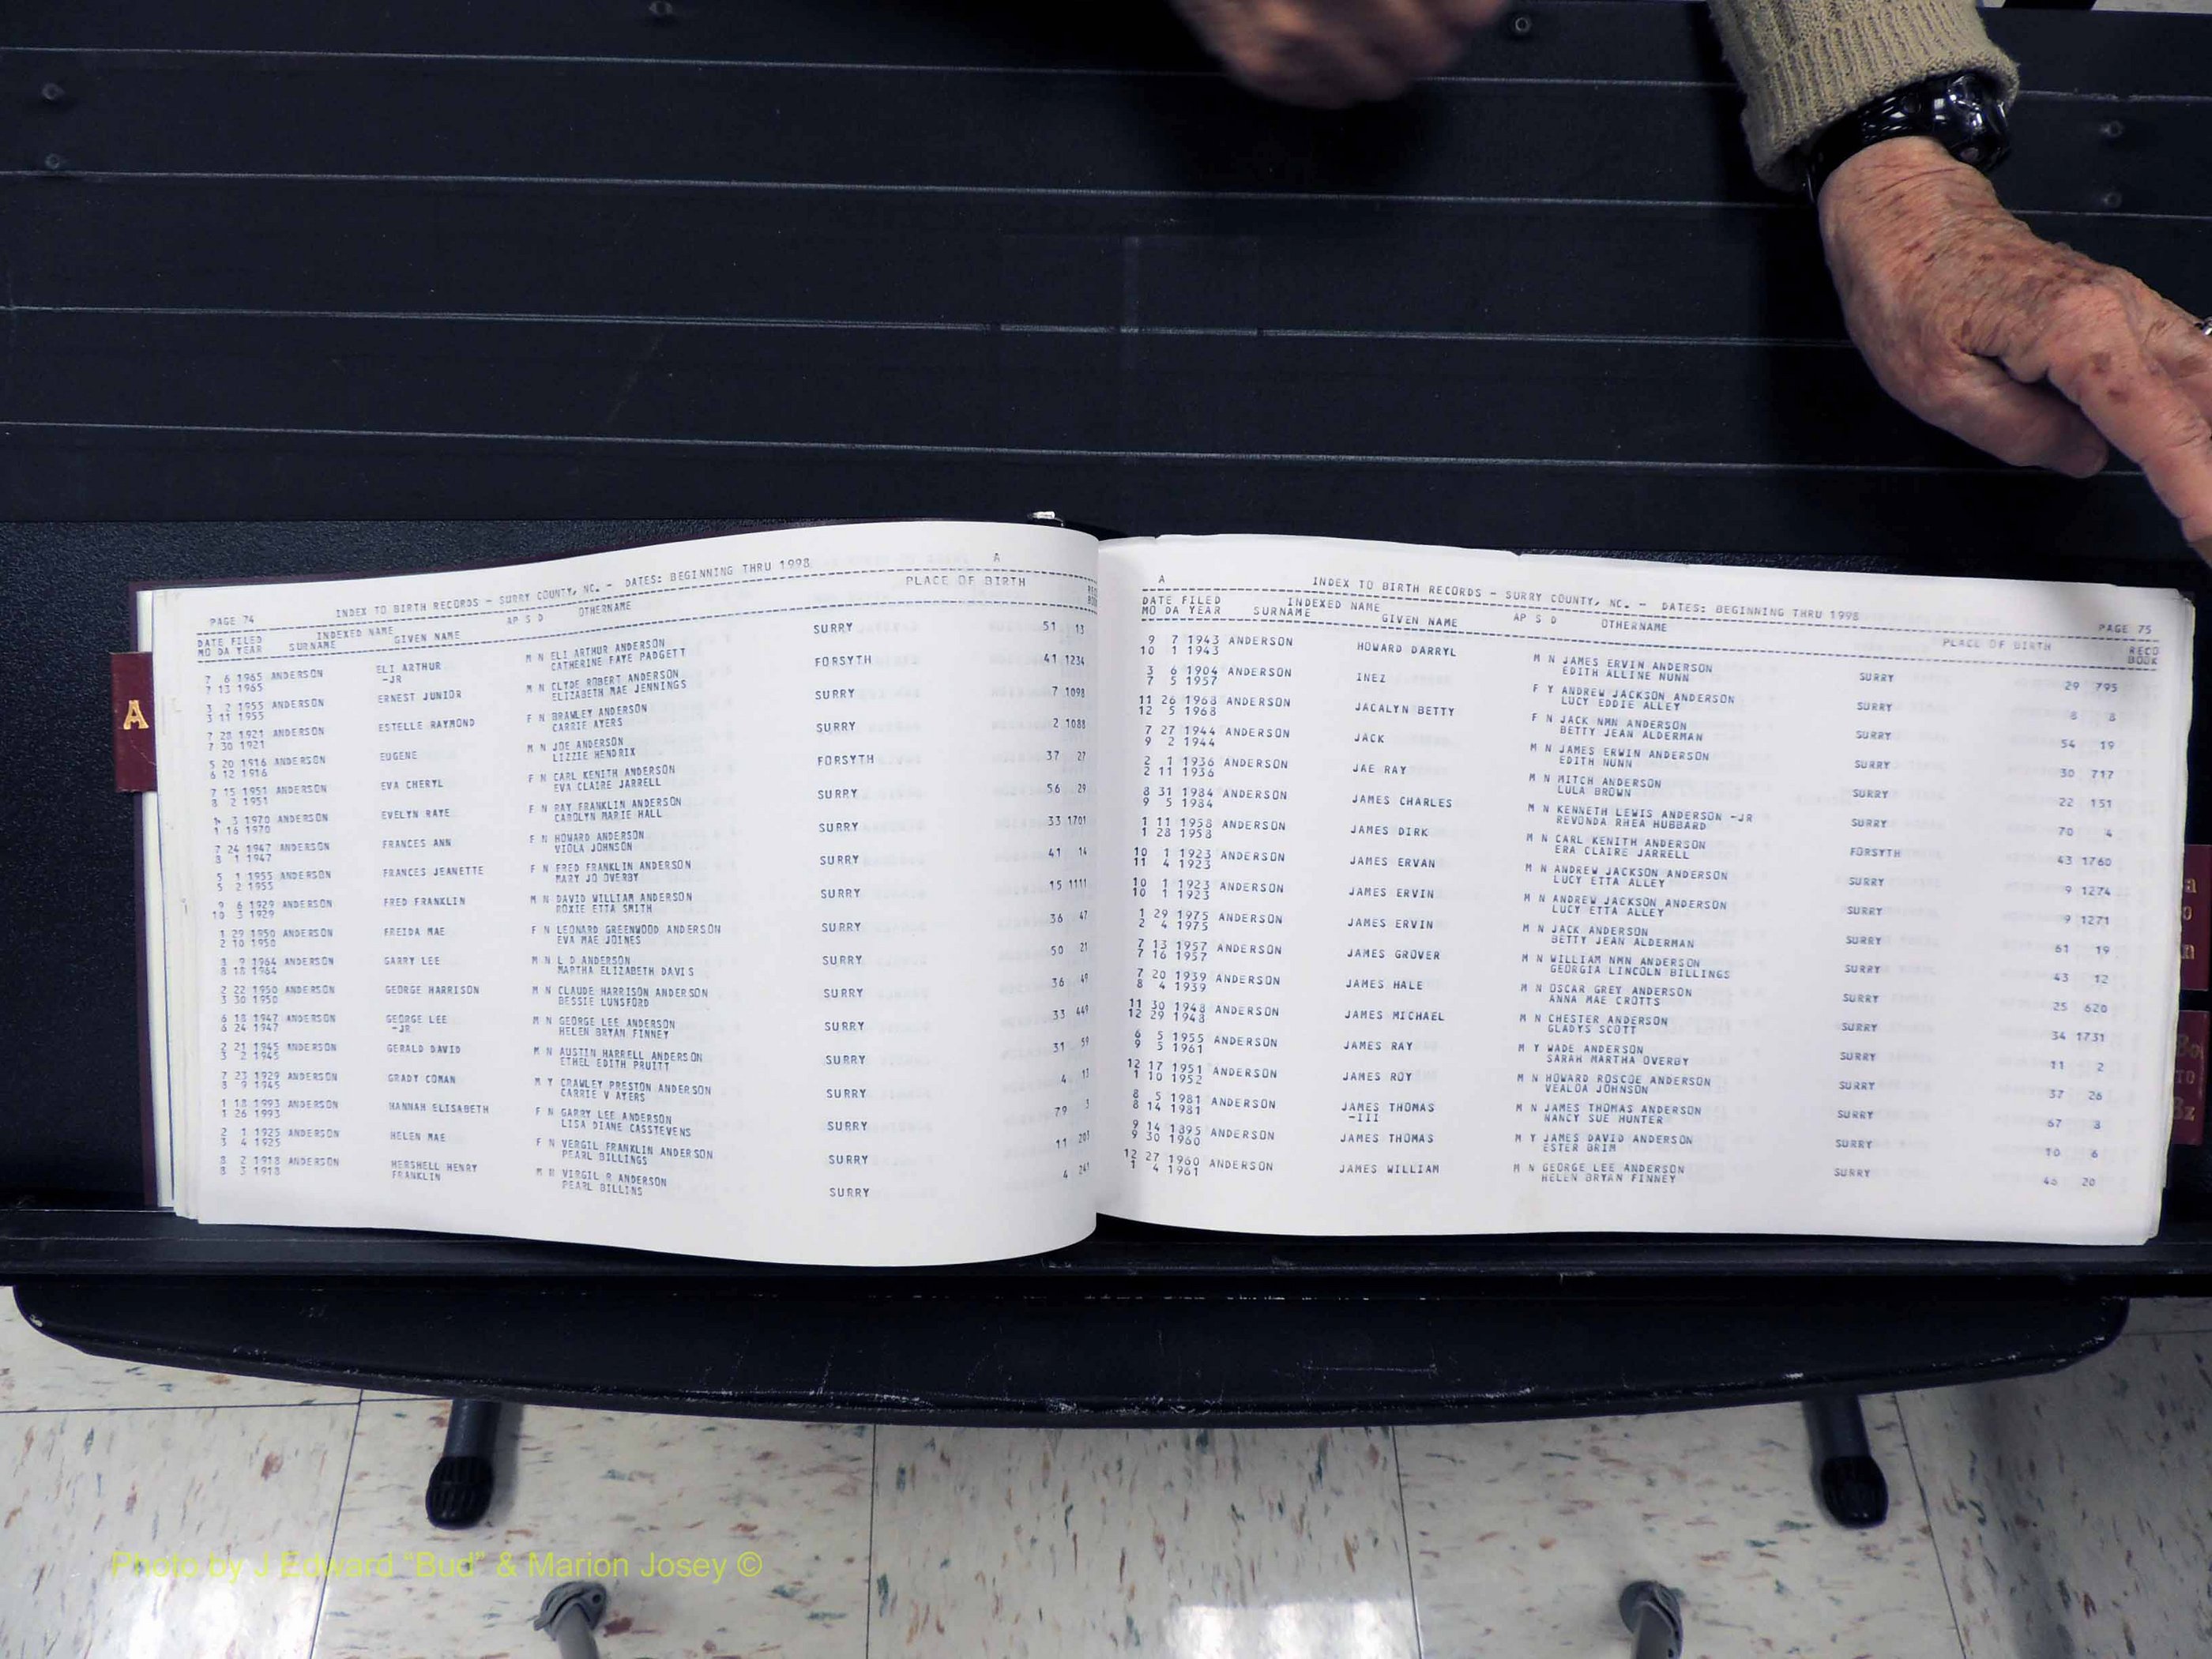 A
PAGE 74 INDEX TO BIRTH RECORDS - SURRY COUNTY, NC. - DATES: BEGINNING THRU 1998 A
DATE FILED INDEXED NAME AP S D OTHERNAME PLACE OF BIRTH
MO DA YEAR SURNAME GIVEN NAME
7 6 1965 ANDERSON ELI ARTHUR M N ELI ARTHUR ANDERSON SURRY 51 13
7 13 1965 -JR CATHERINE FAYE PADGETT
3 2 1955 ANDERSON ERNEST JUNIOR M N CLYDE ROBERT ANDERSON FORSYTH 41 1234
3 11 1955 ELIZABETH MAE JENNINGS
7 28 1921 ANDERSON ESTELLE RAYMOND F N BRAWLEY ANDERSON SURRY 7 1098
7 30 1921 CARRIE AYERS
5 20 1916 ANDERSON EUGENE M N JOE ANDERSON SURRY 2 1088
6 12 1916 LIZZIE HENDRIX
7 15 1951 ANDERSON EVA CHERYL F N CARL KENITH ANDERSON FORSYTH 37 27
8 2 1951 EVA CLAIRE JARRELL
3 1970 ANDERSON EVELYN RAYE F N RAY FRANKLIN ANDERSON SURRY 56 29
1 16 1970 CAROLYN MARIE HALL
7 24 1947 ANDERSON FRANCES ANN F N HOWARD ANDERSON SURRY 33 1701
8 1 1947 VIOLA JOHNSON
5 1 1955 ANDERSON FRANCES JEANETTE F N FRED FRANKLIN ANDERSON SURRY 41 14
5 2 1955 MARY JO OVERBY
9 6 1929 ANDERSON FRED FRANKLIN M N DAVID WILLIAM ANDERSON SURRY 15 1111
10 3 1929 ROXIE ETTA SMITH
1 29 1950 ANDERSON FREIDA MAE F N LEONARD GREENWOOD ANDERSON SURRY 36 47
2 10 1950 EVA MAE JOINES
8 9 1964 ANDERSON GARRY LEE M N L D ANDERSON SURRY 50 21
8 18 1964 MARTHA ELIZABETH DAVIS
2 22 1950 ANDERSON GEORGE HARRISON M N CLAUDE HARRISON ANDERSON SURRY 36 49
3 30 1950 BESSIE LUNSFORD
6 18 1947 ANDERSON GEORGE LEE M N GEORGE LEE ANDERSON SURRY 33 449
6 24 1947 -JR HELEN BRYAN FINNEY
2 21 1945 ANDERSON GERALD DAVID M N AUSTIN HARRELL ANDERSON SURRY 31 59
3 2 1945 ETHEL EDITH PRUITT
7 23 1929 ANDERSON GRADY COMAN M Y CRAWLEY PRESTON ANDERSON SURRY 4 13
8 9 1945 CARRIE V AYERS
1 18 1993 ANDERSON HANNAH ELISABETH F N GARRY LEE ANDERSON SURRY 79 3
1 26 1993 LISA DIANE CASSTEVENS
2 1 1925 ANDERSON HELEN MAE F N VERGIL FRANKLIN ANDERSON SURRY 11 201
3 4 1925 PEARL BILLINGS
8 2 1918 ANDERSON HERSHELL HENRY M N VIRGIL R ANDERSON SURRY 4 241
8 3 1918 FRANKLIN PEARL BILLINS
A INDEX TO BIRTH RECORDS - SURRY COUNTY, NC. - DATES: BEGINNING THRU 1998 PAGE 75
DATE FILED INDEXED NAME AP S D OTHERNAME PLACE OF BIRTH RECO
MO DA YEAR SURNAME GIVEN NAME BOOK
9 7 1943 ANDERSON HOWARD DARRYL M N JAMES ERVIN ANDERSON SURRY 29 795
10 1 1943 EDITH ALLINE NUNN
3 6 1904 ANDERSON INEZ F Y ANDREW JACKSON ANDERSON SURRY 8 8
7 5 1957 LUCY EDDIE ALLEY
11 26 1968 ANDERSON JACALYN BETTY F N JACK NMN ANDERSON SURRY 54 19
12 5 1968 BETTY JEAN ALDERMAN
7 27 1944 ANDERSON JACK M N JAMES ERWIN ANDERSON SURRY 30 717
9 2 1944 EDITH NUNN
2 1 1936 ANDERSON JAE RAY M N MITCH ANDERSON SURRY 22 151
2 11 1936 LULA BROWN
8 31 1984 ANDERSON JAMES CHARLES M N KENNETH LEWIS ANDERSON -JR SURRY 70 4
9 5 1984 REVONDA RHEA HUBBARD
1 11 1958 ANDERSON JAMES DIRK M N CARL KENITH ANDERSON FORSYTH 43 1760
1 28 1958 ERA CLAIRE JARRELL
10 1 1923 ANDERSON JAMES ERVAN M N ANDREW JACKSON ANDERSON SURRY 9 1274
11 4 1923 LUCY ETTA ALLEY
10 1 1923 ANDERSON JAMES ERVIN M N ANDREW JACKSON ANDERSON SURRY 9 1271
10 1 1923 LUCY ETTA ALLEY
1 29 1975 ANDERSON JAMES ERVIN M N JACK ANDERSON SURRY 61 19
2 4 1975 BETTY JEAN ALDERMAN
7 13 1957 ANDERSON JAMES GROVER M N WILLIAM NMN ANDERSON SURRY 43 12
7 16 1957 GEORGIA LINCOLN BILLINGS
7 20 1939 ANDERSON JAMES HALE M N OSCAR GREY ANDERSON SURRY 25 620
8 4 1939 ANNA MAE CROTTS
11 30 1948 ANDERSON JAMES MICHAEL M N CHESTER ANDERSON SURRY 34 1731
12 29 1948 GLADYS SCOTT
6 5 1955 ANDERSON JAMES RAY M Y WADE ANDERSON SURRY 11 2
9 5 1961 SARAH MARTHA OVERBY
12 17 1951 ANDERSON JAMES ROY M N HOWARD ROSCOE ANDERSON SURRY 37 26
1 10 1952 VEALOA JOHNSON
8 5 1981 ANDERSON JAMES THOMAS M N JAMES THOMAS ANDERSON SURRY 67 8
8 14 1981 -III NANCY SUE HUNTER
9 14 1895 ANDERSON JAMES THOMAS M Y JAMES DAVID ANDERSON SURRY 10 6
9 30 1960 ESTER BRIM
12 27 1960 ANDERSON JAMES WILLIAM M N GEORGE LEE ANDERSON SURRY 46 20
1 4 1961 HELEN BRYAN FINNEY
Photo by J Edward “Bud” & Marion Josey ©